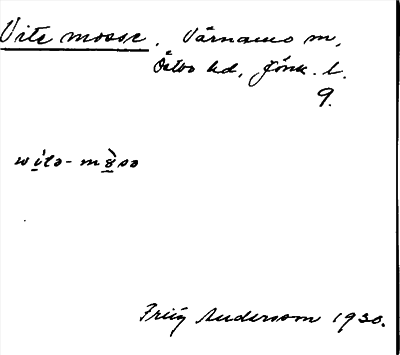 Vite mosse. Värnamo m,
Östbo hd, Jönk. l.
9.
wite-måse
Friğ Andersson 1930.